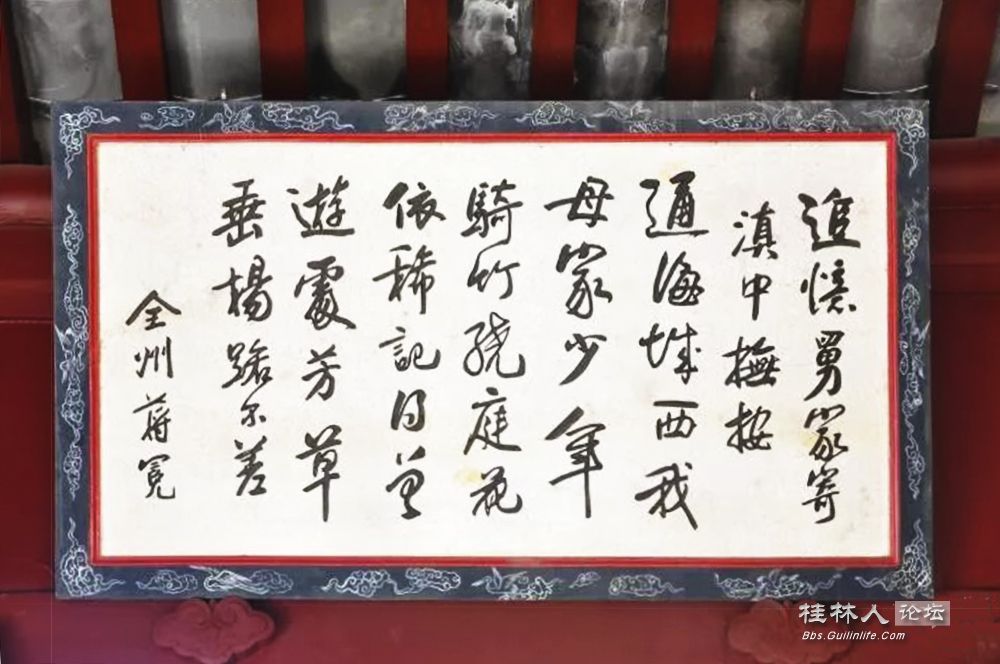 追憶舅家寄
滇中撫按
通海城西我
母家少年
騎竹繞庭花
依稀記得曾
遊處芳草
垂楊路不差
全州蔣冕
桂林人论坛
Bbs.Guilinlife.Com